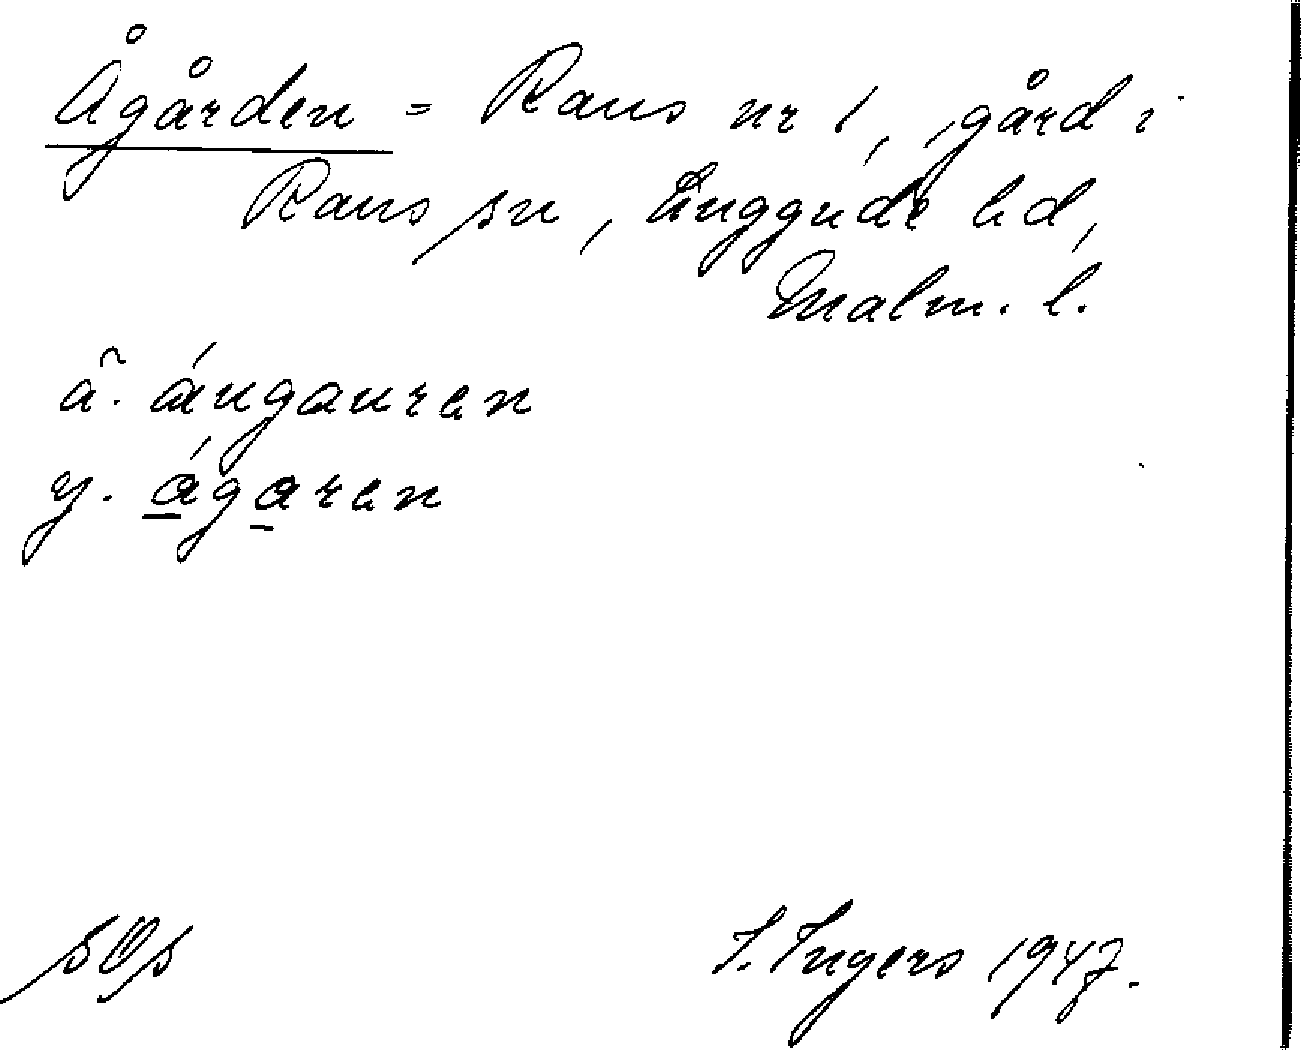 Ågården = Raus nr 1, gård i
Raus sn, Luggude hd,
Malm. l.
ä. áugauren
y. ágaren
I. Ingers 1947.